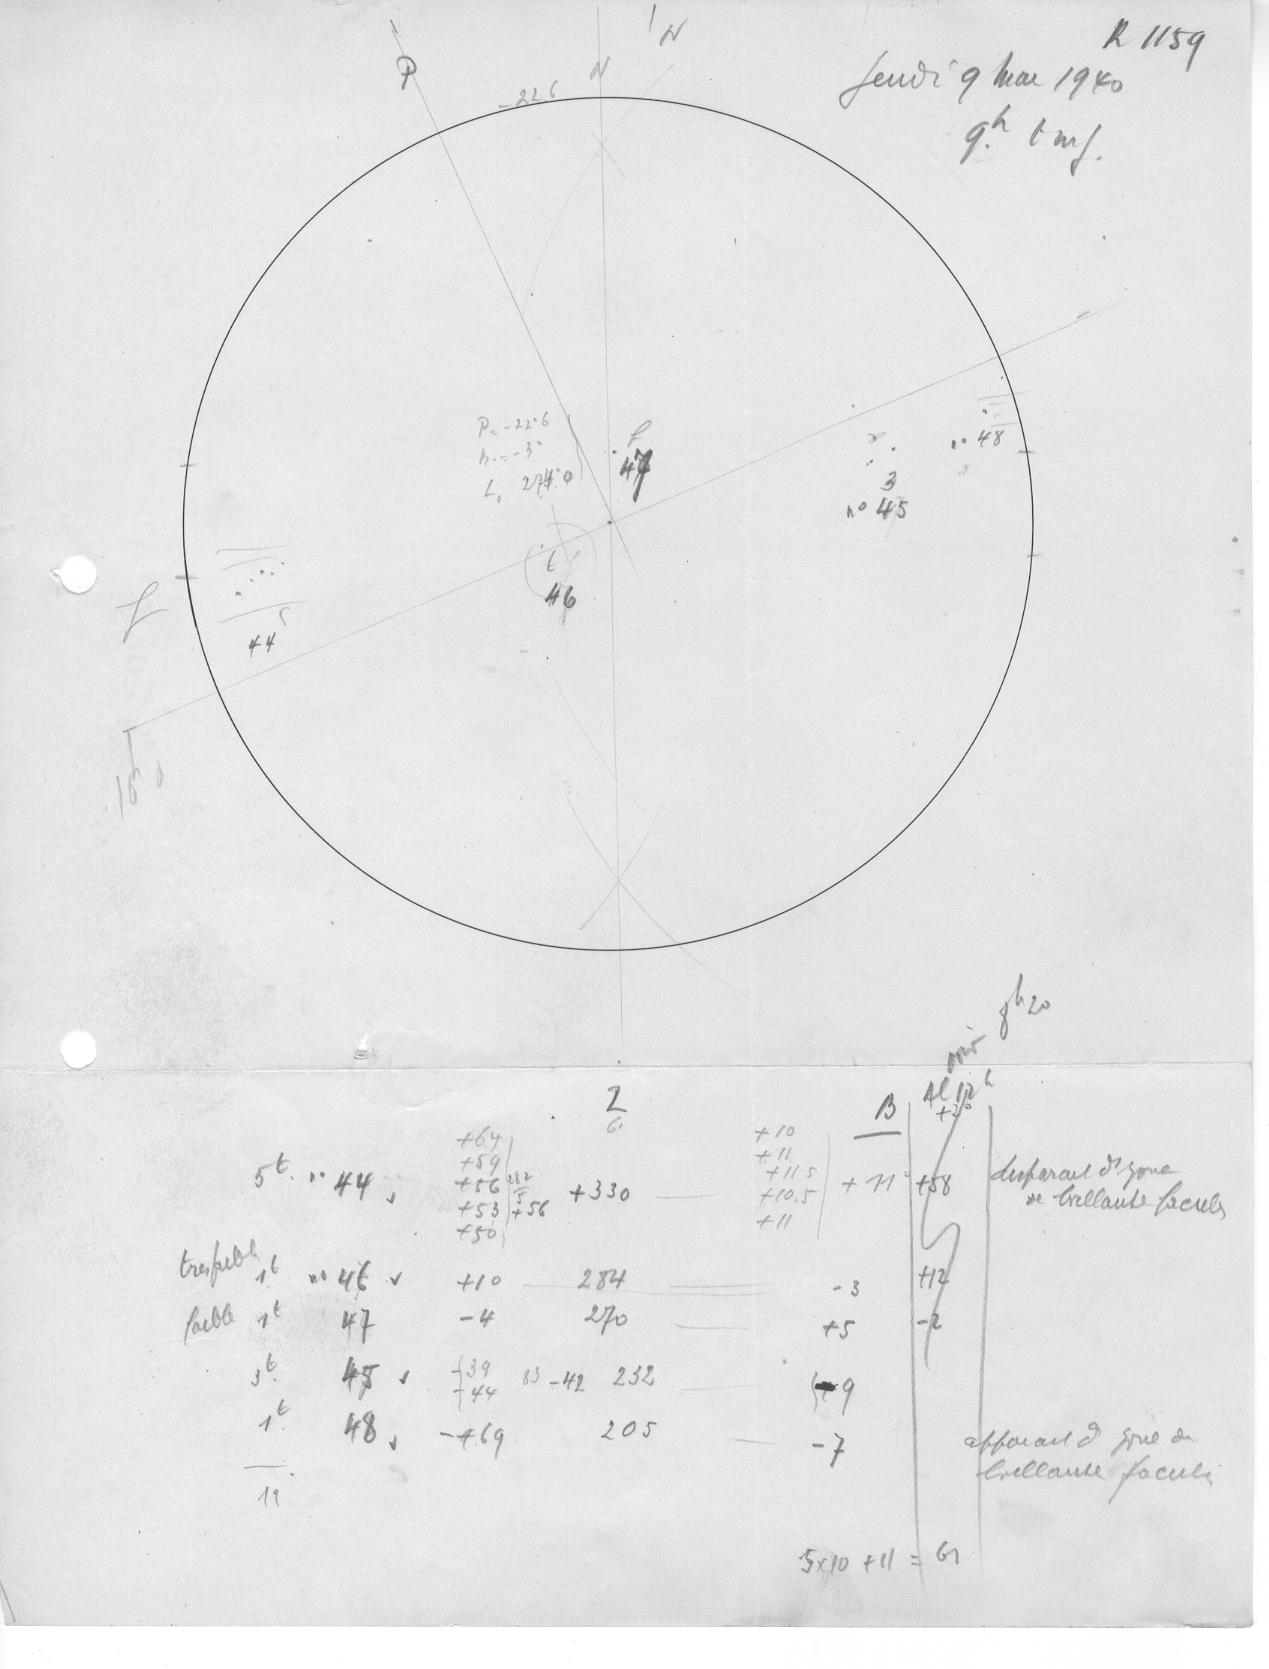 R 1159
Jeudi 9 mai 1940
9.h t m f.
N
N
P
-22 6
P = -22°6
L0 274°0
47
46
44
3
n° 45
n° 48
8h20
L
B
+64
+59
+56
+53
+50
282
5
+56
+10
+11
+11 5
+10.5
+11
5t. n° 44 +330 +11° +58
disparait ds zone
de brillante facules
tres faible
1t n° 46 +10 284 -3 +12
faible 1t 47 -4 270 +5 -2
3t 45 -39 83 -42 232 9
-44
1t 48 69 205 -7
apparait ds zone de
brillante facules
11
5x10 +11 = 61